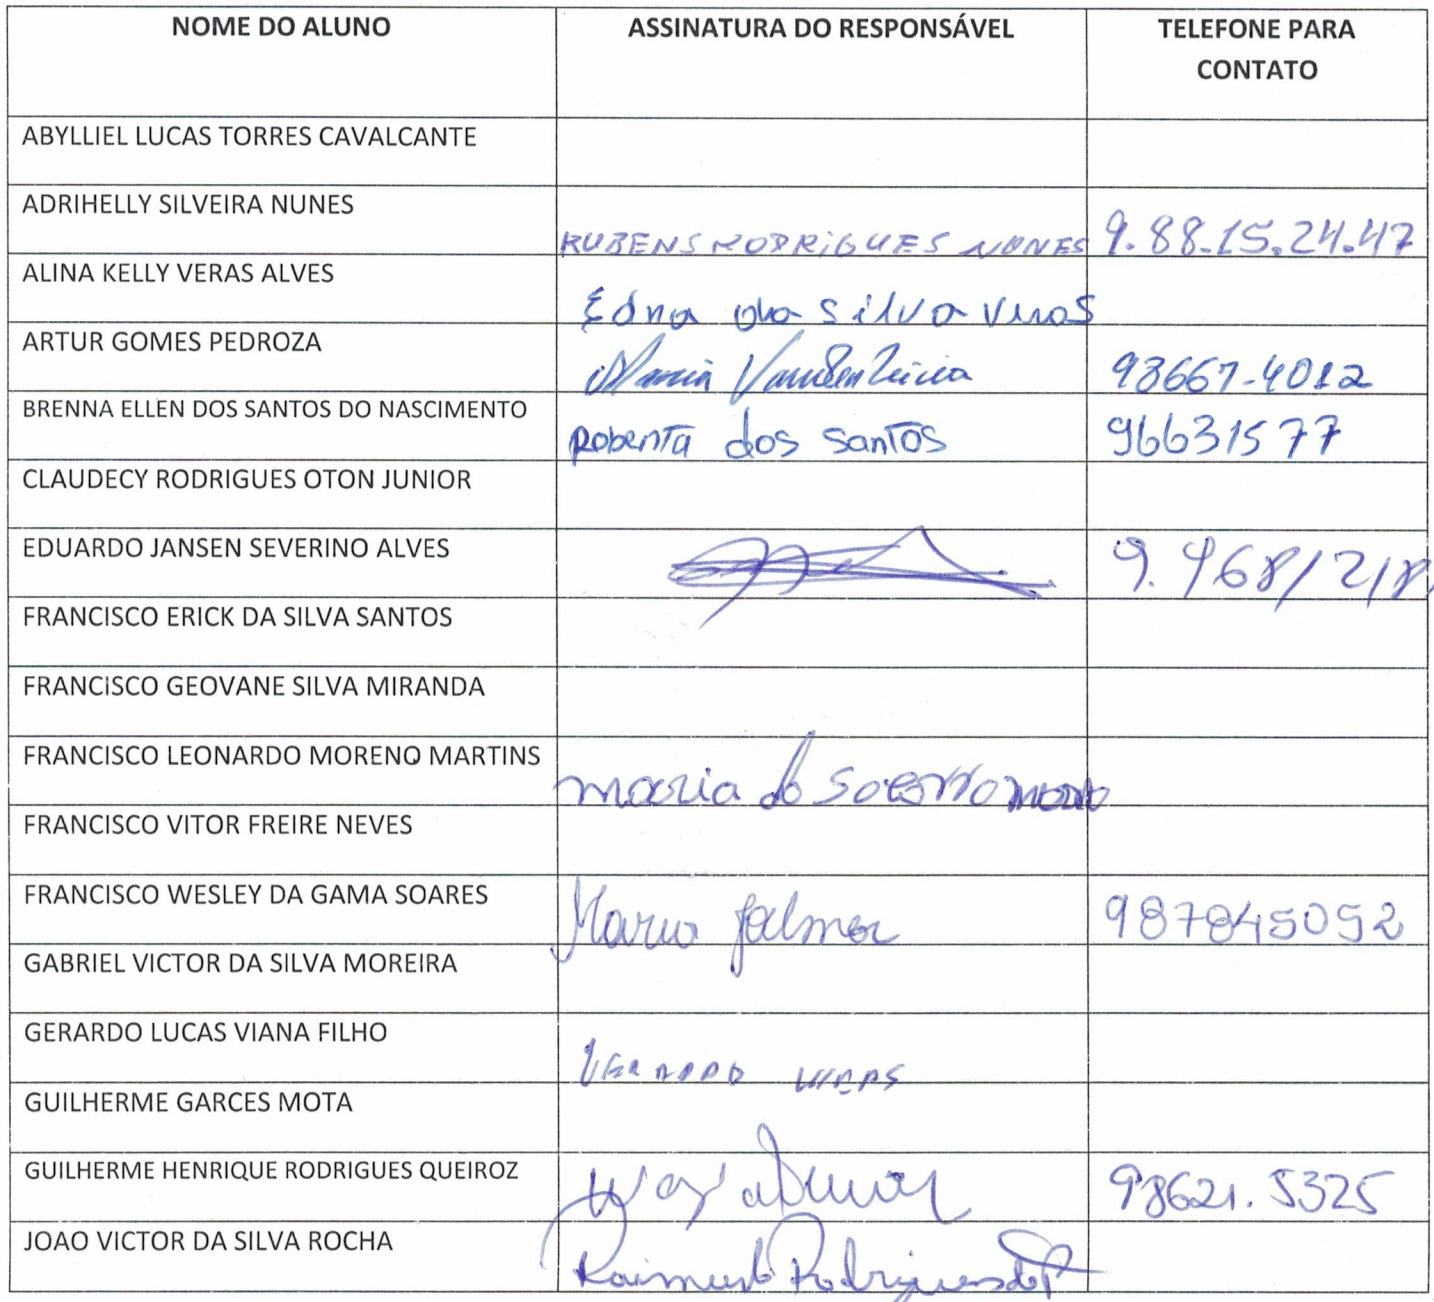 NOME DO ALUNO ASSINATURA DO RESPONSÁVEL TELEFONE PARA
CONTATO
ABYLLIEL LUCAS TORRES CAVALCANTE
ADRIHELLY SILVEIRA NUNES
RUBENS RODRIGUES NUNES 9.88.15.24.47
ALINA KELLY VERAS ALVES
Edna da Silva Veras
ARTUR GOMES PEDROZA
Maria 98667-4012
BRENNA ELLEN DOS SANTOS DO NASCIMENTO
Roberta dos Santos 96631577
CLAUDECY RODRIGUES OTON JUNIOR
EDUARDO JANSEN SEVERINO ALVES
FRANCISCO ERICK DA SILVA SANTOS
FRANCISCO GEOVANE SILVA MIRANDA
FRANCISCO LEONARDO MORENO MARTINS
maria do socorro moreno
FRANCISCO VITOR FREIRE NEVES
FRANCISCO WESLEY DA GAMA SOARES
987845052
GABRIEL VICTOR DA SILVA MOREIRA
GERARDO LUCAS VIANA FILHO
GUILHERME GARCES MOTA
GUILHERME HENRIQUE RODRIGUES QUEIROZ
98621.5325
JOAO VICTOR DA SILVA ROCHA
Raimundo Rodrigues